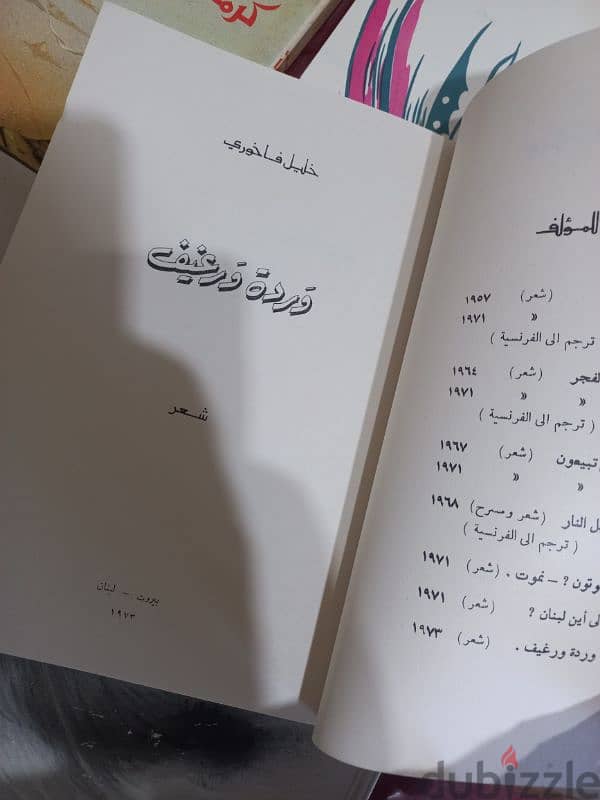 كرم
خليل فاخوري
وردة ورغيف
شعر
بيروت - لبنان
١٩٧٣
للمؤلف
(شعر) ١٩٥٧
« ١٩٧١
( ترجم الى الفرنسية )
لفجر (شعر) ١٩٦٤
« « ١٩٧١
( ترجم الى الفرنسية )
تبيعون (شعر) ١٩٦٧
« « ١٩٧١
ل النار (شعر ومسرح) ١٩٦٨
( ترجم الى الفرنسية )
وتون ? - نموت . (شعر) ١٩٧١
لى أين لبنان ? (شعر) ١٩٧١
وردة ورغيف . (شعر) ١٩٧٣
dubizzle